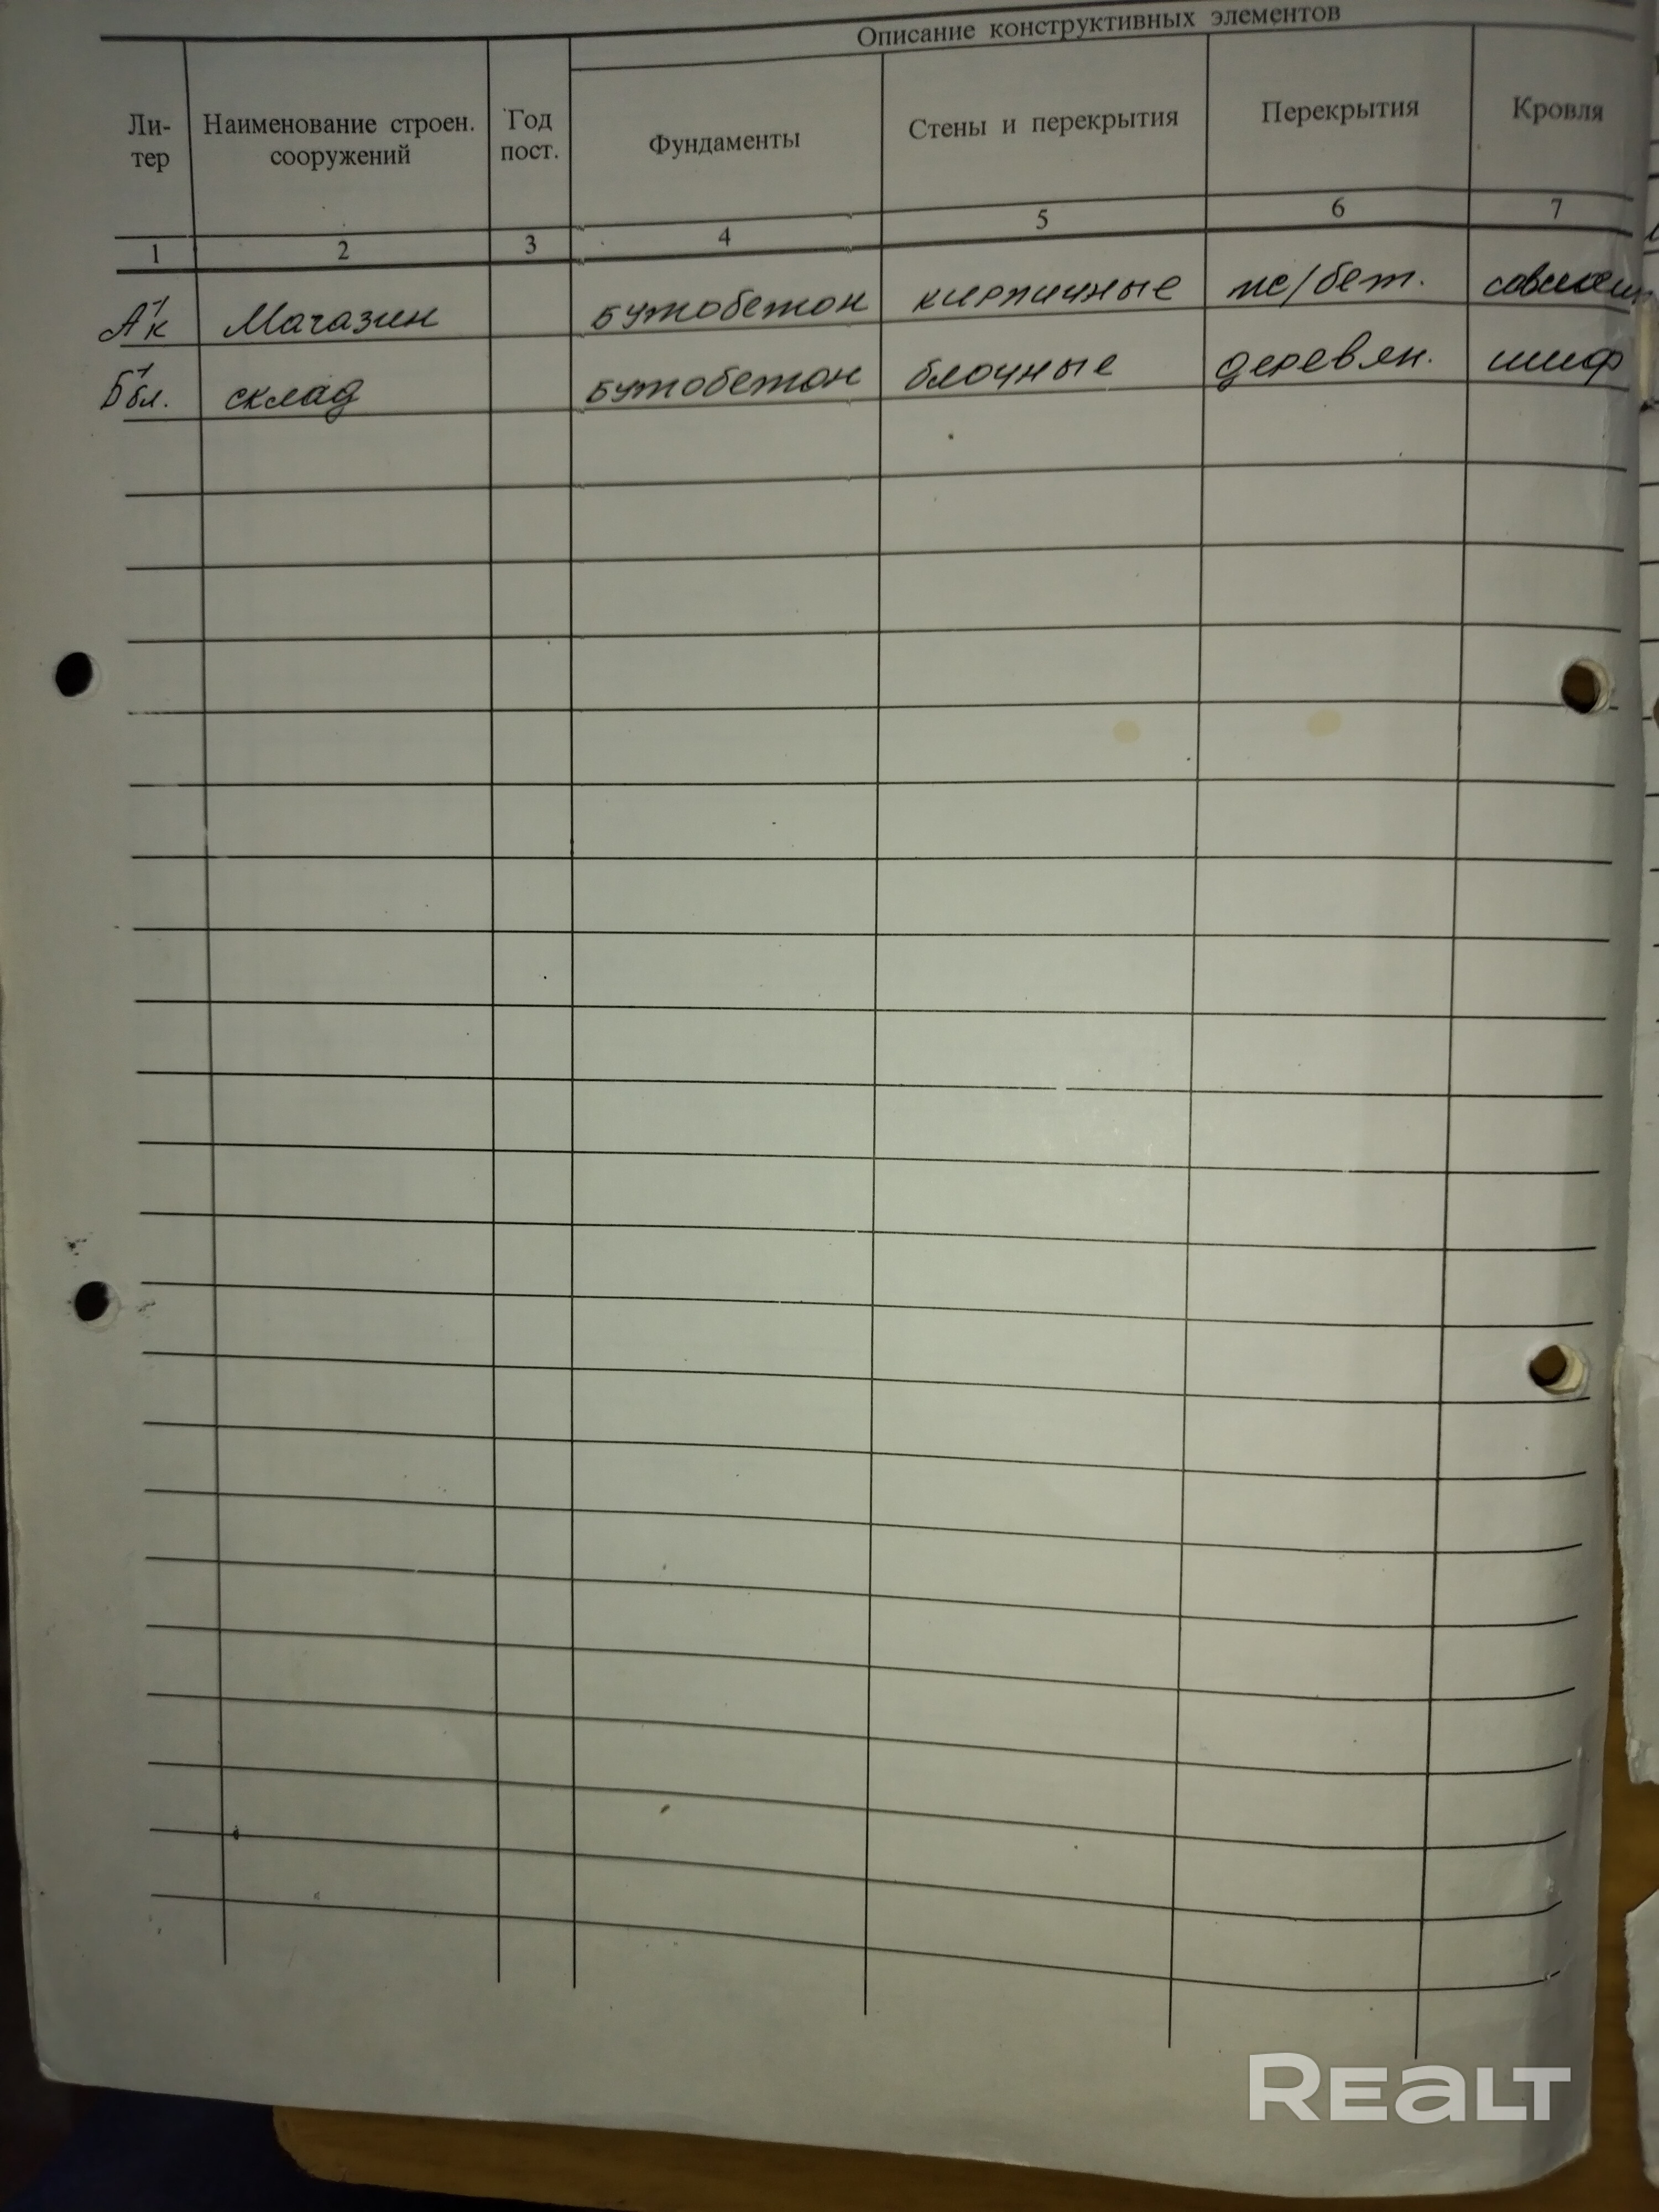 Описание конструктивных элементов
Ли-
тер
Наименование строен.
сооружений
Год
пост.
Фундаменты
Стены и перекрытия
Перекрытия
Кровля
1 2 3 4 5 6 7
А-1/к Магазин бутобетон кирпичные ж/бет.
Б-1/бл. склад бутобетон блочные деревян. шиф
REALT